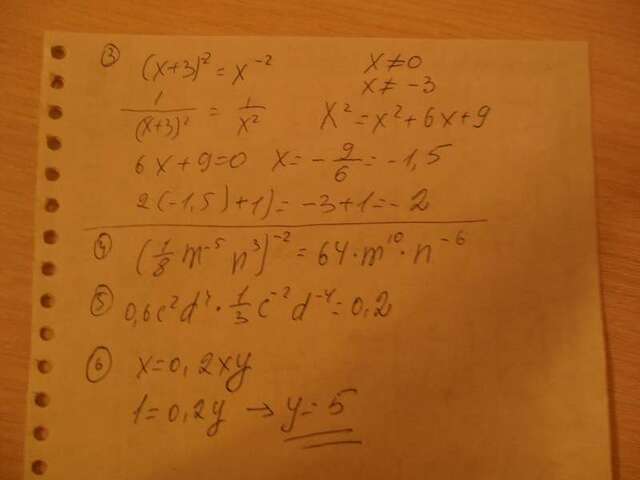 ③ (x+3)² = x⁻² x ≠ 0
x ≠ -3
1/(x+3)² = 1/x² x² = x² + 6x + 9
6x + 9 = 0 x = - 9/6 = -1,5
2(-1,5) + 1) = -3 + 1 = -2
④ (1/8 m⁻⁵ n³)⁻² = 64 · m¹⁰ · n⁻⁶
⑤ 0,6c²d⁴ · 1/3 c⁻² d⁻⁴ = 0,2
⑥ x = 0,2xy
1 = 0,2y → y = 5